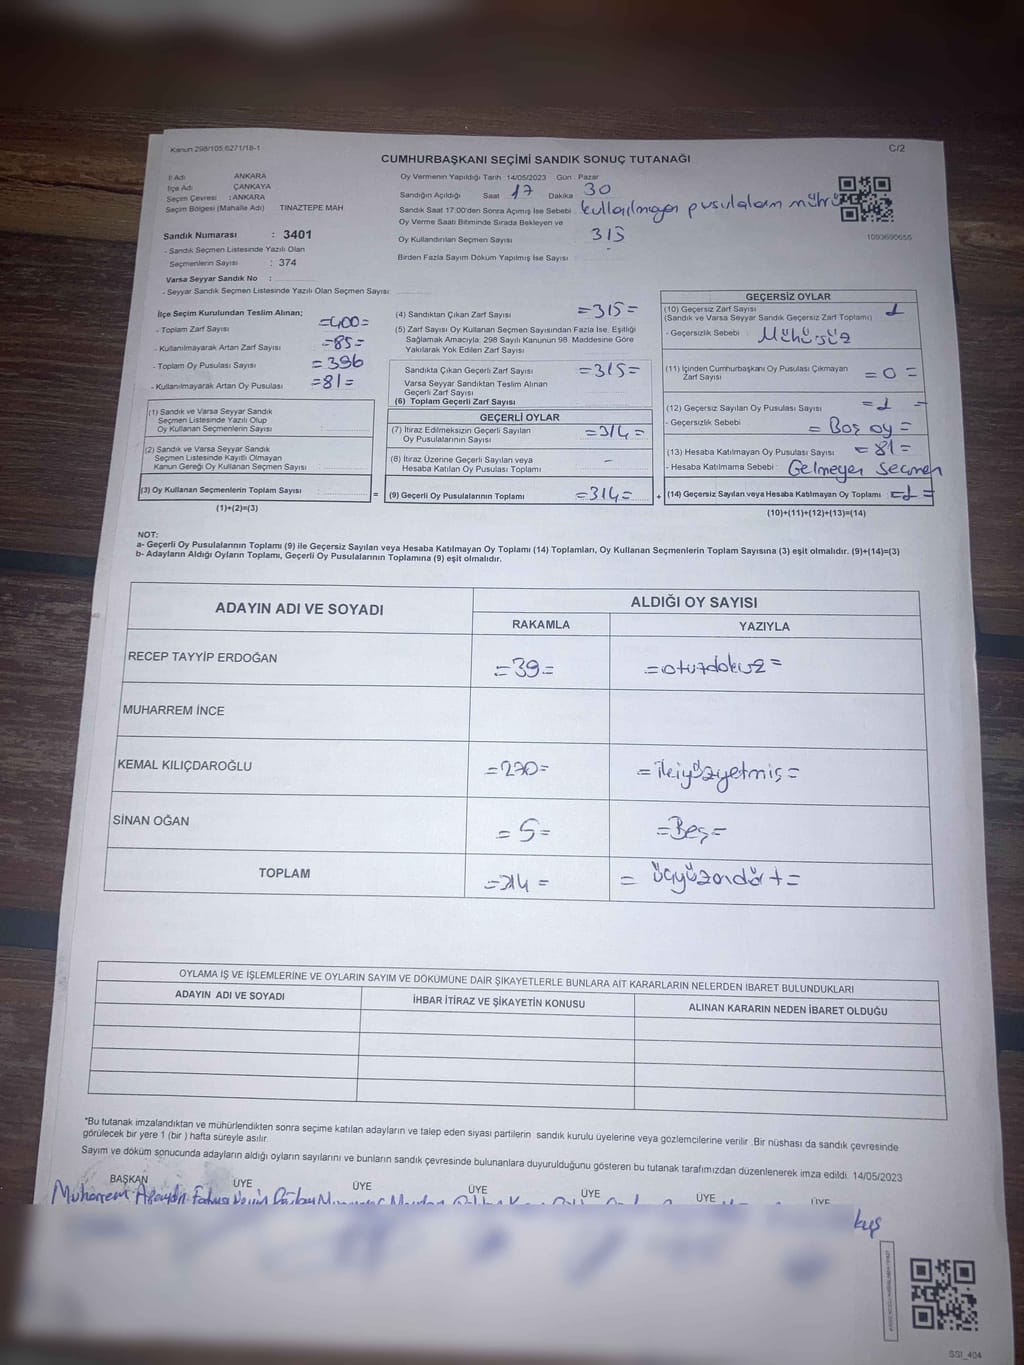 Kanun 298/105 6271/18-1
C/2
CUMHURBAŞKANI SEÇİMİ SANDIK SONUÇ TUTANAĞI
İl Adı ANKARA
İlçe Adı ÇANKAYA
Seçim Çevresi : ANKARA
Seçim Bölgesi (Mahalle Adı) TINAZTEPE MAH.
Sandık Numarası : 3401
- Sandık Seçmen Listesinde Yazılı Olan
Seçmenlerin Sayısı : 374
Varsa Seyyar Sandık No :
- Seyyar Sandık Seçmen Listesinde Yazılı Olan Seçmen Sayısı
Oy Vermenin Yapıldığı Tarih 14/05/2023 Gün : Pazar
Sandığın Açıldığı Saat 17 Dakika 30
Sandık Saat 17:00'den Sonra Açımış İse Sebebi kullanılmayan pusulaların
Oy Verme Saati Bitiminde Sırada Bekleyen ve
Oy Kullandırılan Seçmen Sayısı 315
Birden Fazla Sayım Döküm Yapılmış İse Sayısı -
1093690656
İlçe Seçim Kurulundan Teslim Alınan;
- Toplam Zarf Sayısı =400=
- Kullanılmayarak Artan Zarf Sayısı =85=
- Toplam Oy Pusulası Sayısı =396
- Kullanılmayarak Artan Oy Pusulası =81=
(1) Sandık ve Varsa Seyyar Sandık
Seçmen Listesinde Yazılı Olup
Oy Kullanan Seçmenlerin Sayısı :
(2) Sandık ve Varsa Seyyar Sandık
Seçmen Listesinde Kayıtlı Olmayan
Kanun Gereği Oy Kullanan Seçmen Sayısı :
(3) Oy Kullanan Seçmenlerin Toplam Sayısı =
(1)+(2)=(3)
(4) Sandıktan Çıkan Zarf Sayısı =315=
(5) Zarf Sayısı Oy Kullanan Seçmen Sayısından Fazla İse. Eşitliği
Sağlamak Amacıyla; 298 Sayılı Kanunun 98. Maddesine Göre
Yakılarak Yok Edilen Zarf Sayısı
Sandıkta Çıkan Geçerli Zarf Sayısı =315=
Varsa Seyyar Sandıktan Teslim Alınan
Geçerli Zarf Sayısı
(6) Toplam Geçerli Zarf Sayısı
GEÇERLİ OYLAR
(7) İtiraz Edilmeksizin Geçerli Sayılan
Oy Pusulalarının Sayısı =314=
(8) İtiraz Üzerine Geçerli Sayılan veya
Hesaba Katılan Oy Pusulası Toplamı -
(9) Geçerli Oy Pusulalarının Toplamı =314= +
GEÇERSİZ OYLAR
(10) Geçersiz Zarf Sayısı 1
(Sandık ve Varsa Seyyar Sandık Geçersiz Zarf Toplamı)
- Geçersizlik Sebebi : Mühürsüz
(11) İçinden Cumhurbaşkanı Oy Pusulası Çıkmayan
Zarf Sayısı =0=
(12) Geçersiz Sayılan Oy Pusulası Sayısı =1=
- Geçersizlik Sebebi =Boş oy=
(13) Hesaba Katılmayan Oy Pusulası Sayısı =81=
- Hesaba Katılmama Sebebi : Gelmeyen Seçmen
(14) Geçersiz Sayılan veya Hesaba Katılmayan Oy Toplamı =1=
(10)+(11)+(12)+(13)=(14)
NOT:
a- Geçerli Oy Pusulalarının Toplamı (9) ile Geçersiz Sayılan veya Hesaba Katılmayan Oy Toplamı (14) Toplamları, Oy Kullanan Seçmenlerin Toplam Sayısına (3) eşit olmalıdır. (9)+(14)=(3)
b- Adayların Aldığı Oyların Toplamı, Geçerli Oy Pusulalarının Toplamına (9) eşit olmalıdır.
ADAYIN ADI VE SOYADI ALDIĞI OY SAYISI
RAKAMLA YAZIYLA
RECEP TAYYİP ERDOĞAN =39= =otuzdokuz=
MUHARREM İNCE
KEMAL KILIÇDAROĞLU =270= =ikiyüzyetmiş=
SİNAN OĞAN =5= =Beş=
TOPLAM =314= =üçyüzondört=
OYLAMA İŞ VE İŞLEMLERİNE VE OYLARIN SAYIM VE DÖKÜMÜNE DAİR ŞİKAYETLERLE BUNLARA AİT KARARLARIN NELERDEN İBARET BULUNDUKLARI
ADAYIN ADI VE SOYADI İHBAR İTİRAZ VE ŞİKAYETİN KONUSU ALINAN KARARIN NEDEN İBARET OLDUĞU
*Bu tutanak imzalandıktan ve mühürlendikten sonra seçime katılan adayların ve talep eden siyası partilerin sandık kurulu üyelerine veya gözlemcilerine verilir .Bir nüshası da sandık çevresinde
görülecek bir yere 1 (bir ) hafta süreyle asılır
Sayım ve döküm sonucunda adayların aldığı oyların sayılarını ve bunların sandık çevresinde bulunanlara duyurulduğunu gösteren bu tutanak tarafımızdan düzenlenerek imza edildi. 14/05/2023
BAŞKAN ÜYE ÜYE ÜYE ÜYE ÜYE ÜYE
Muharrem
SSI_404